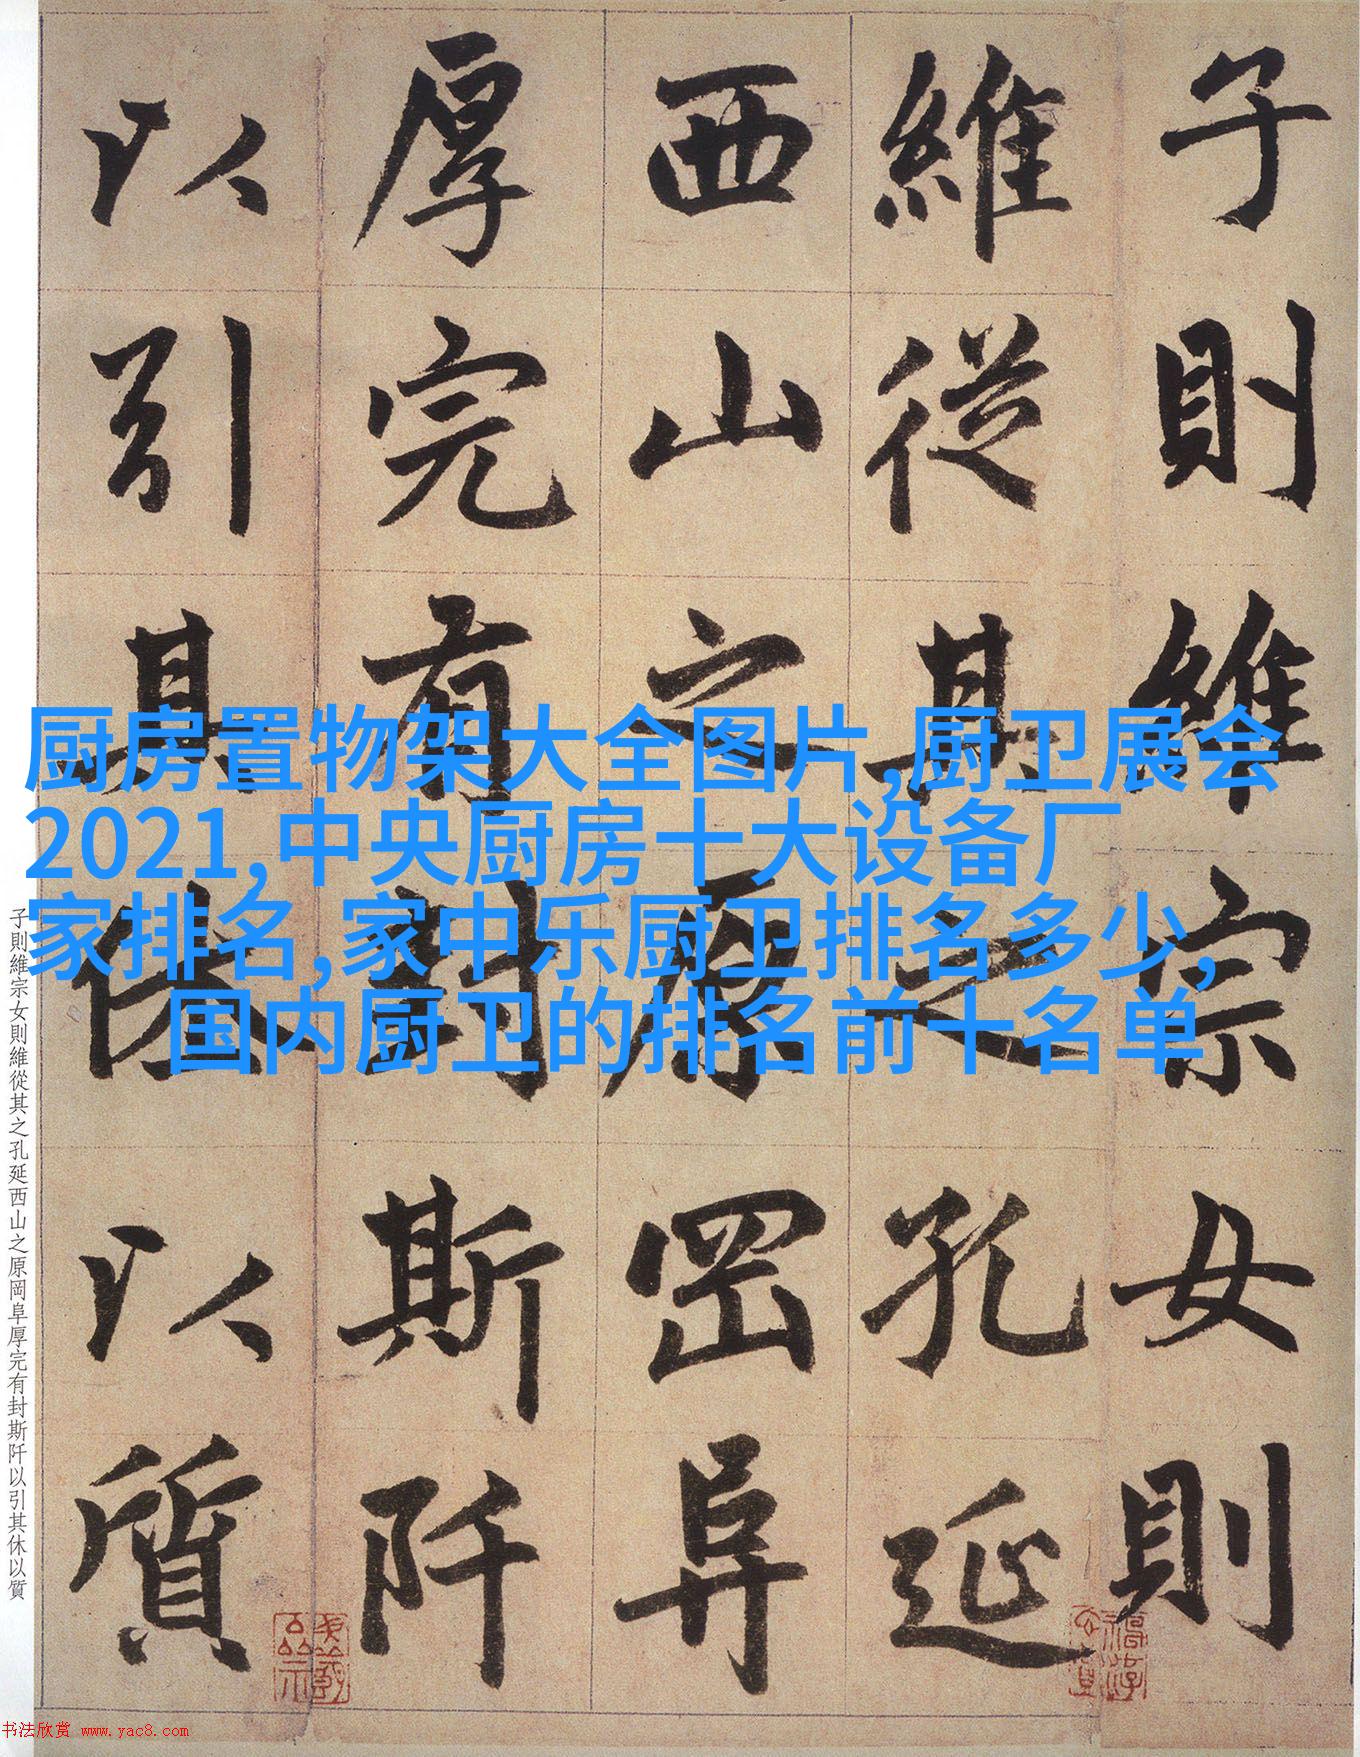 子則維宗女則
維從其之孔延
西山之原罡阜
厚完有封斯阡
以引其休以質
厨房置物架大全图片,厨卫展会
2021,中央厨房十大设备厂
家排名,家中乐厨卫排名多少,
国内厨卫的排名前十名单
子則維宗女則維從其之孔延西山之原岡阜厚完有封斯阡以引其休以質
书法欣赏 www.yac8.com